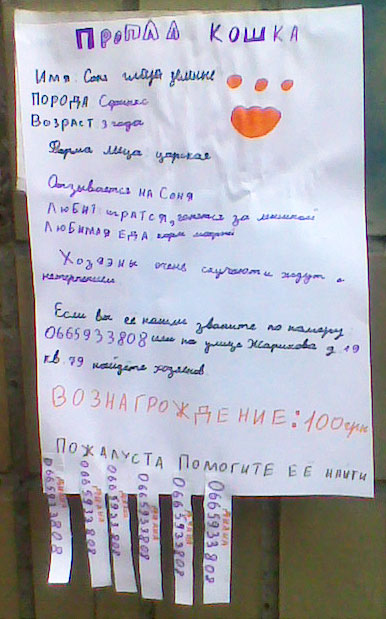 ПРОПАЛА КОШКА
Имя: Соня глаза зелёные
ПОРОДА Сфинкс
Возраст 3 года
Форма лица царская
Отзывается НА Соня
ЛЮБИТ игратся, гонятся за мышкой
ЛЮБИМАЯ ЕДА корм мокрый
Хозяэны очень скучают и ждут с
нетерпением
Если вы её нашли звоните по номеру:
0665933808 или на улице Жарикова д. 19
кв. 79 найдёте хозяенов
ВОЗНАГРОЖДЕНИЕ: 100 грн
ПОЖАЛУСТА ПОМОГИТЕ ЕЁ НАЙТИ
0665933808
0665933808
0665933808
0665933808
0665933808
0665933808